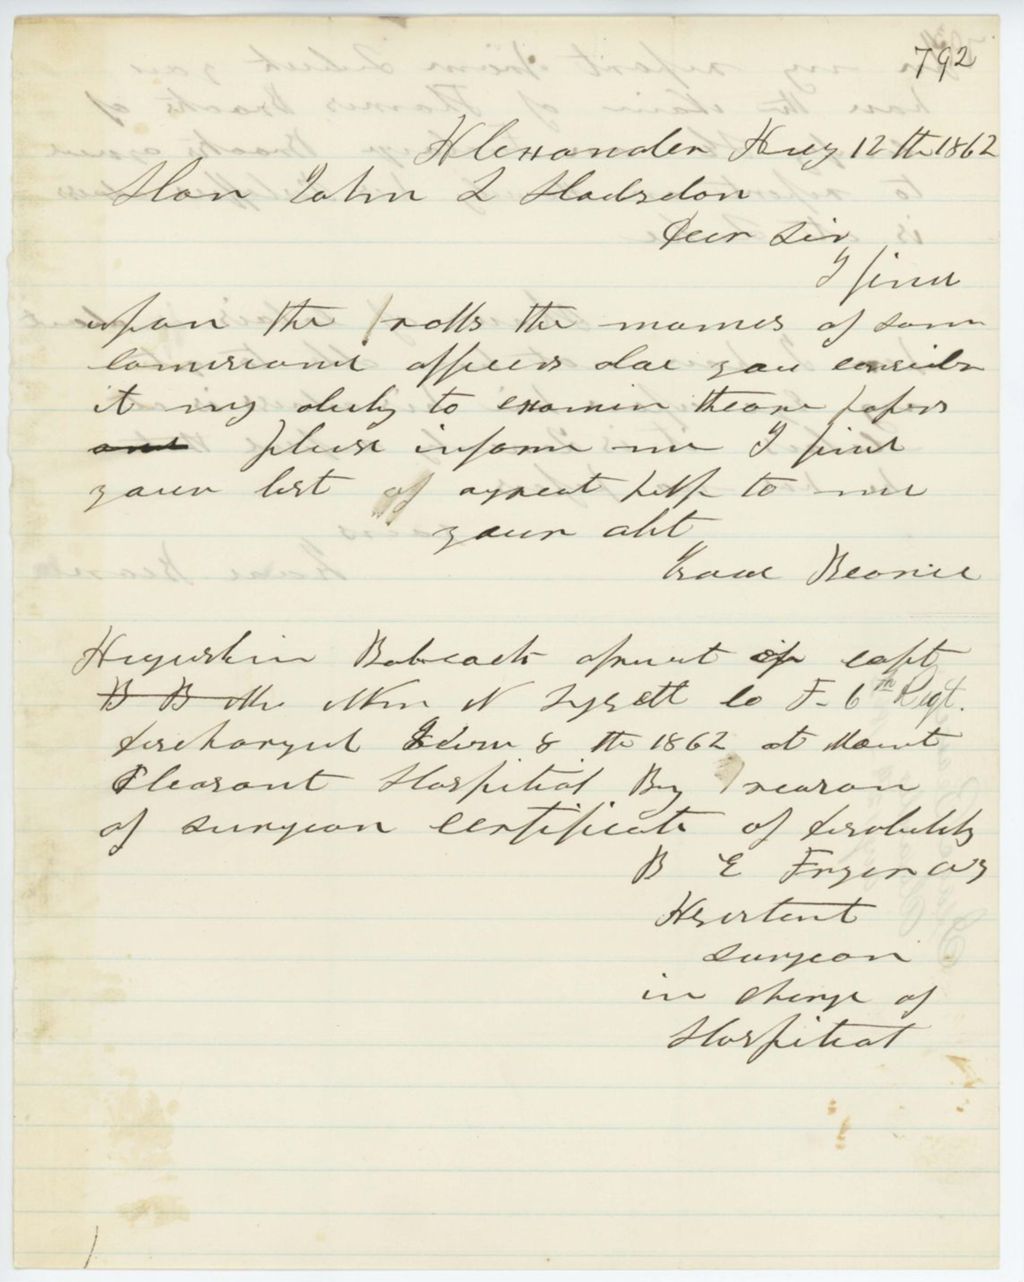 792
Alexander Aug 12 th 1862
Hon John L Hodsdon
Dear Sir
I find
upon the rolls the names of som
comisiond officers doe you consider
it my duty to examin theare papers
and pleas inform me I find
your list of agreat help to me
your obt
Isaac Beanie
Babcock of capt
B B the Wm N Lysett co F. 6th Regt.
discharged 8 th 1862 at Mount
Pleasant Hospital By reason
of surgeon certificate of disability
B E Fryer
Assistant
surgeon
in charge of
Hospital